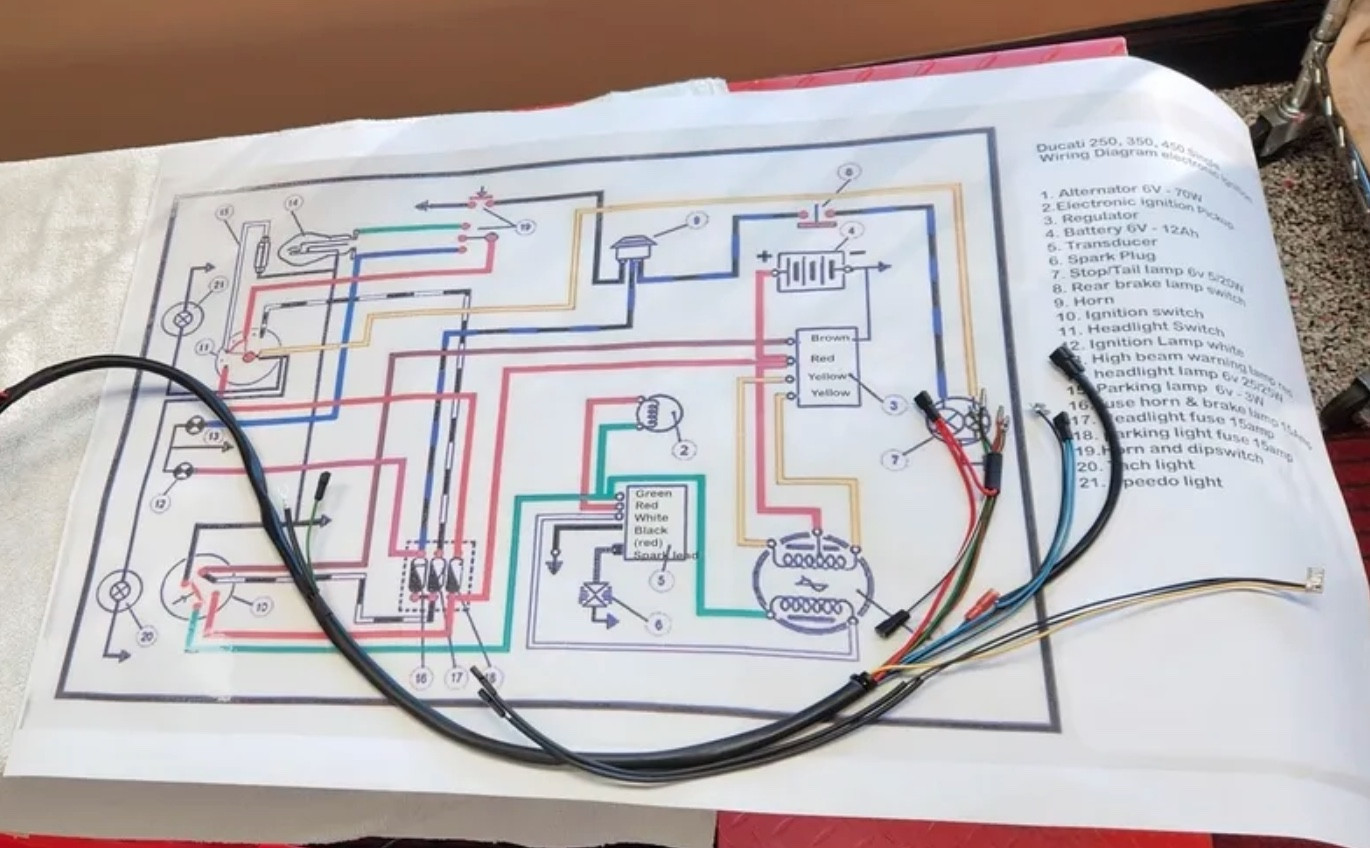 Ducati 250, 350, 450 Single
Wiring Diagram electronic ignition
1. Alternator 6V - 70W
2. Electronic ignition Pickup
3. Regulator
4. Battery 6V - 12Ah
5. Transducer
6. Spark Plug
7. Stop/Tail lamp 6v 5/20W
8. Rear brake lamp switch
9. Horn
10. Ignition switch
11. Headlight Switch
12. Ignition Lamp white
High beam warning lamp red
headlight lamp 6v 25/25W
15. Parking lamp 6v - 3W
16. use horn & brake lamp 15Amp
17. eadlight fuse 15amp
18. arking light fuse 15amp
19. Horn and dipswitch
20. ach light
21. peedo light
8
15
14
19
9
4
+
-
21
11
Brown
Red
Yellow
Yellow
3
13
2
7
12
Green
Red
White
Black
(red)
Spark lead
5
10
6
20
16
17
18